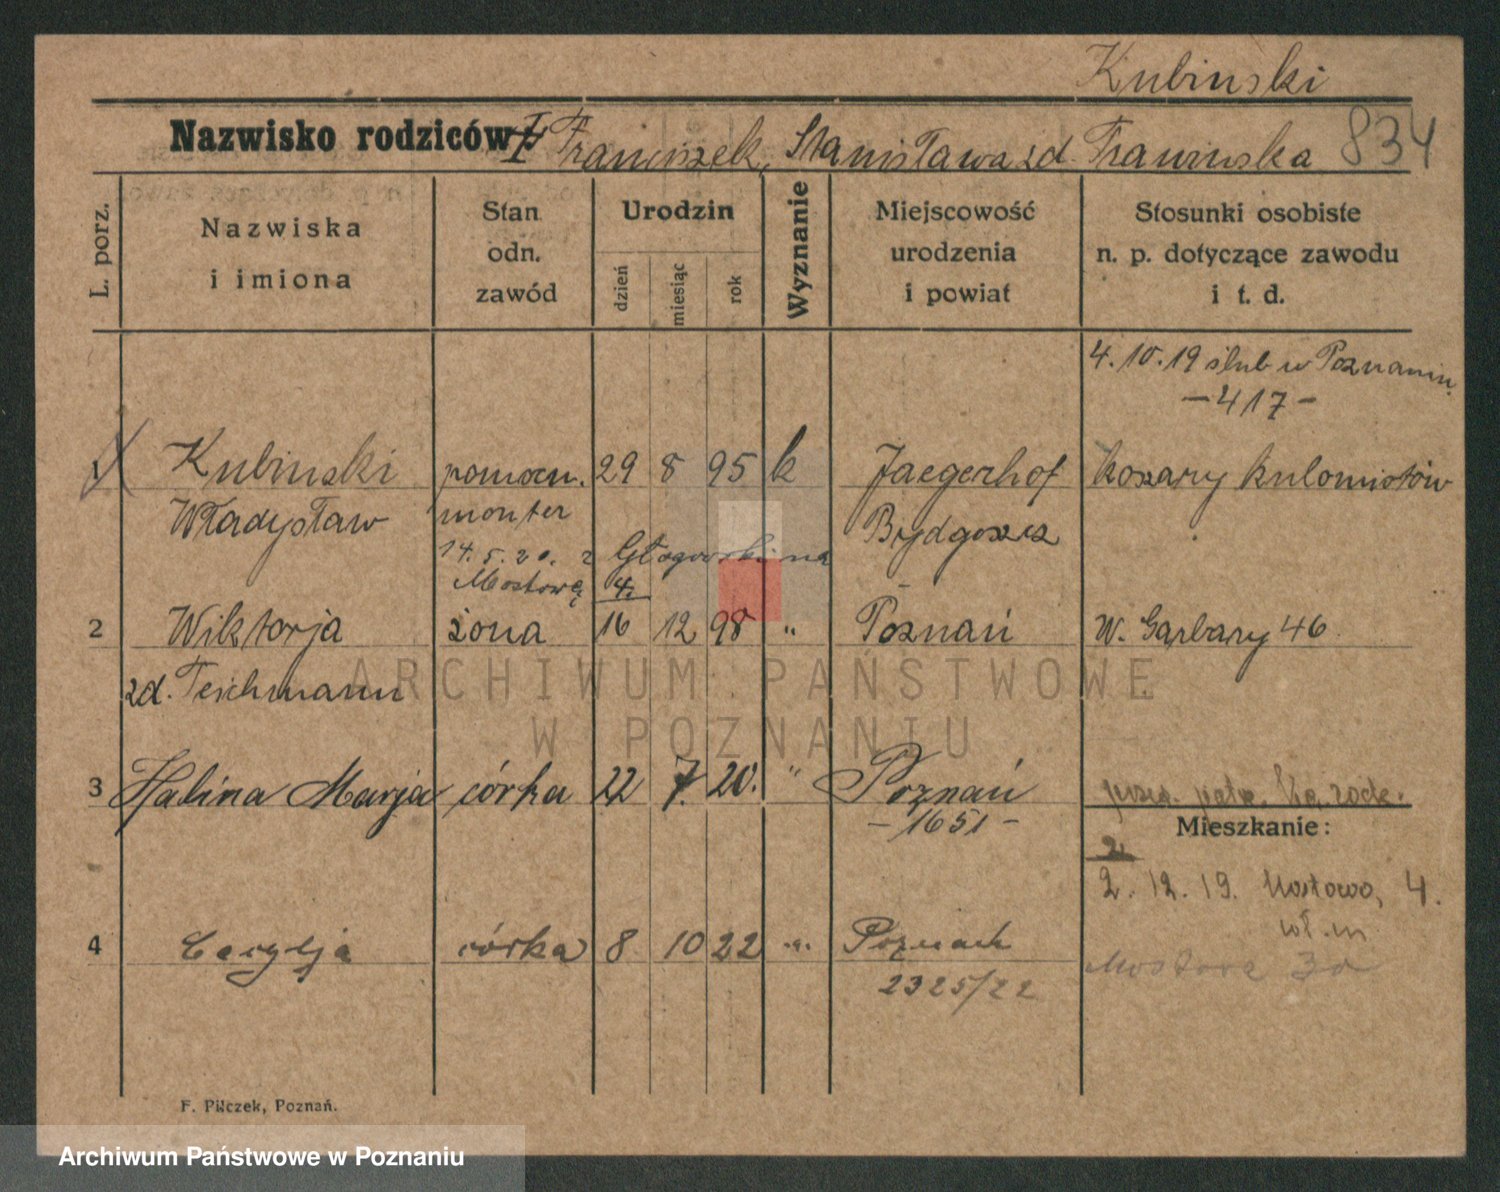 Kubinski
Nazwisko rodziców: Franciszek, Stanisława zd. Trawinska 834
L. porz.
Nazwiska
i imiona
Stan
odn.
zawód
Urodzin
dzień
miesiąc
rok
Wyznanie
Miejscowość
urodzenia
i powiat
Stosunki osobiste
n. p. dotyczące zawodu
i t. d.
4.10.19 ślub w Poznaniu
-417-
1 Kubinski pomocn. 29 8 95 k Jaegerhof koszary kulomiotów
Władysław monter Bydgoszcz
14.5.20. z Głogowski na
Mostową 4.
2 Wiktorja żona 16 12 98 " Poznań W. Garbary 46
zd. Teichmann
3 Halina Marja córka 22 7. 20. " Poznań
-1651-
Mieszkanie:
2.12.19. Mostowa, 4.
4 Cecylja córka 8 10 22 " Poznań
2325/22
Mostowa
F. Pilczek, Poznań.
ARCHIWUM PAŃSTWOWE
W POZNANIU
Archiwum Państwowe w Poznaniu